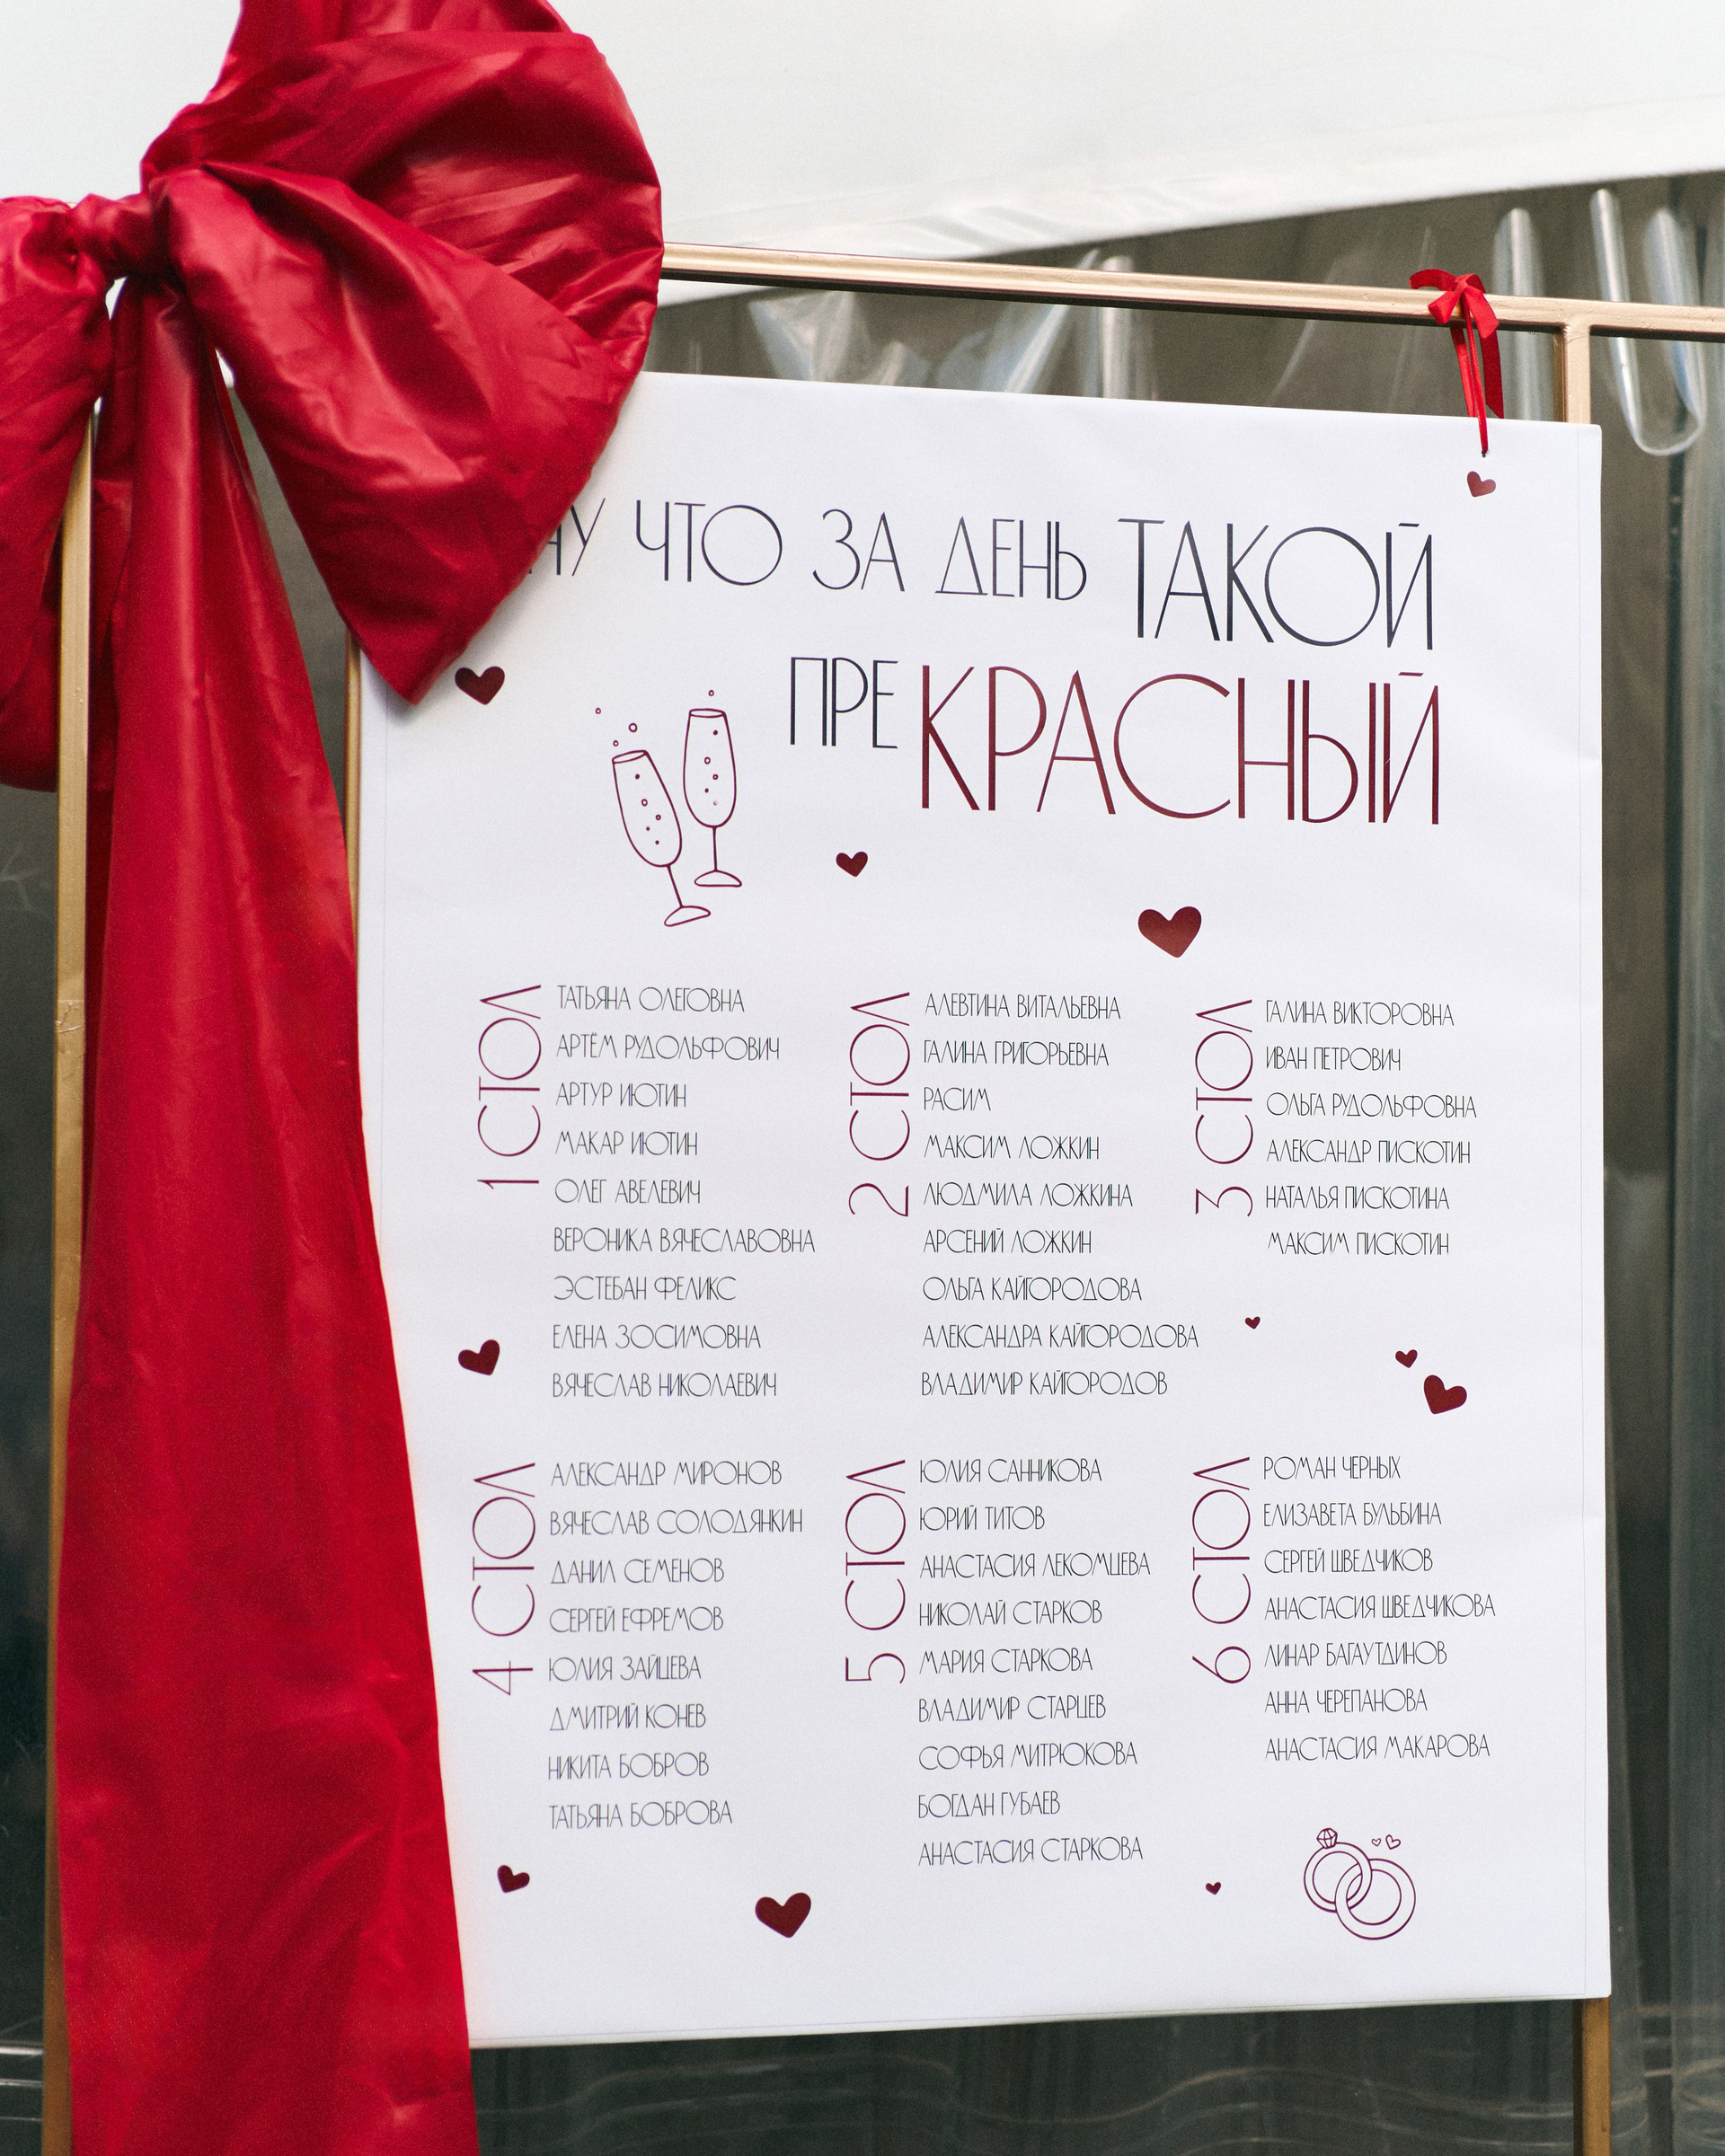 НУ ЧТО ЗА ДЕНЬ ТАКОЙ
ПРЕКРАСНЫЙ
1 СТОЛ
ТАТЬЯНА ОЛЕГОВНА
АРТЁМ РУДОЛЬФОВИЧ
АРТУР ИЮТИН
МАКАР ИЮТИН
ОЛЕГ АВЕЛЕВИЧ
ВЕРОНИКА ВЯЧЕСЛАВОВНА
ЭСТЕБАН ФЕЛИКС
ЕЛЕНА ЗОСИМОВНА
ВЯЧЕСЛАВ НИКОЛАЕВИЧ
2 СТОЛ
АЛЕВТИНА ВИТАЛЬЕВНА
ГАЛИНА ГРИГОРЬЕВНА
РАСИМ
МАКСИМ ЛОЖКИН
ЛЮДМИЛА ЛОЖКИНА
АРСЕНИЙ ЛОЖКИН
ОЛЬГА КАЙГОРОДОВА
АЛЕКСАНДРА КАЙГОРОДОВА
ВЛАДИМИР КАЙГОРОДОВ
3 СТОЛ
ГАЛИНА ВИКТОРОВНА
ИВАН ПЕТРОВИЧ
ОЛЬГА РУДОЛЬФОВНА
АЛЕКСАНДР ПИСКОТИН
НАТАЛЬЯ ПИСКОТИНА
МАКСИМ ПИСКОТИН
4 СТОЛ
АЛЕКСАНДР МИРОНОВ
ВЯЧЕСЛАВ СОЛОДЯНКИН
ДАНИЛ СЕМЕНОВ
СЕРГЕЙ ЕФРЕМОВ
ЮЛИЯ ЗАЙЦЕВА
ДМИТРИЙ КОНЕВ
НИКИТА БОБРОВ
ТАТЬЯНА БОБРОВА
5 СТОЛ
ЮЛИЯ САННИКОВА
ЮРИЙ ТИТОВ
АНАСТАСИЯ ЛЕКОМЦЕВА
НИКОЛАЙ СТАРКОВ
МАРИЯ СТАРКОВА
ВЛАДИМИР СТАРЦЕВ
СОФЬЯ МИТРЮКОВА
БОГДАН ГУБАЕВ
АНАСТАСИЯ СТАРКОВА
6 СТОЛ
РОМАН ЧЕРНЫХ
ЕЛИЗАВЕТА БУЛЬБИНА
СЕРГЕЙ ШВЕДЧИКОВ
АНАСТАСИЯ ШВЕДЧИКОВА
ЛИНАР БАГАУТДИНОВ
АННА ЧЕРЕПАНОВА
АНАСТАСИЯ МАКАРОВА